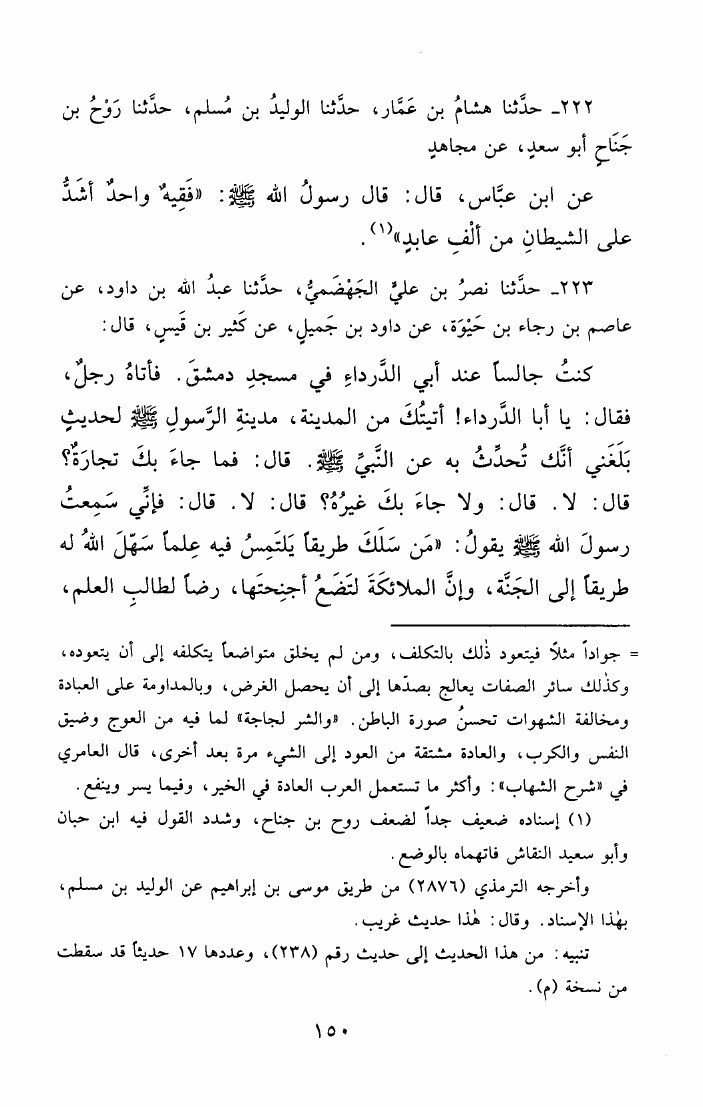 ٢٢٢ـ حدَّثنا هشامُ بن عَمَّار، حدَّثنا الوليدُ بن مُسلم، حدَّثنا رَوْحُ بن
جَنَاحٍ أبو سعدٍ، عن مجاهدٍ
عن ابن عبَّاس، قال: قال رسولُ الله ﷺ: «فَقِيهٌ واحدٌ أشَدُّ
على الشيطانِ من ألْفِ عابدٍ»(١).
٢٢٣ـ حدَّثنا نصرُ بن عليٍّ الجَهْضَميُّ، حدَّثنا عبدُ الله بن داود، عن
عاصم بن رجاء بن حَيْوَة، عن داود بن جَميلٍ، عن كَثير بن قَيسٍ، قال:
كنتُ جالساً عند أبي الدَّرداءِ في مسجدِ دمشقَ. فأتاهُ رجلٌ،
فقال: يا أبا الدَّرداء! أتيتُكَ من المدينة، مدينةِ الرَّسولِ ﷺ لحديثٍ
بَلَغَني أنَّك تُحدِّثُ به عن النَّبيِّ ﷺ. قال: فما جاءَ بكَ تجارَةٌ؟
قال: لا. قال: ولا جاءَ بكَ غيرُهُ؟ قال: لا. قال: فإنِّي سَمِعتُ
رسولَ الله ﷺ يقولُ: «مَن سَلَكَ طريقاً يَلتَمِسُ فيه عِلماً سَهّلَ اللهُ له
طريقاً إلى الجَنَّة، وإنَّ الملائكَةَ لتَضَعُ أجنِحتَها، رضاً لطالبِ العلم،
= جواداً مثلاً فيتعود ذٰلك بالتكلف، ومن لم يخلق متواضعاً يتكلفه إلى أن يتعوده،
وكذٰلك سائر الصفات يعالج بصدّها إلى أن يحصل الغرض، وبالمداومة على العبادة
ومخالفة الشهوات تحسنُ صورة الباطن. «والشر لجاجة» لما فيه من العوج وضيق
النفس والكرب، والعادة مشتقة من العود إلى الشيء مرة بعد أخرى، قال العامري
في «شرح الشهاب»: وأكثر ما تستعمل العرب العادة في الخير، وفيما يسر وينفع.
(١) إسناده ضعيف جداً لضعف روح بن جناح، وشدد القول فيه ابن حبان
وأبو سعيد النقاش فاتهماه بالوضع.
وأخرجه الترمذي (٢٨٧٦) من طريق موسى بن إبراهيم عن الوليد بن مسلم،
بهٰذا الإسناد. وقال: هٰذا حديث غريب.
تنبيه: من هذا الحديث إلى حديث رقم (٢٣٨)، وعددها ١٧ حديثاً قد سقطت
من نسخة (م).
١٥٠